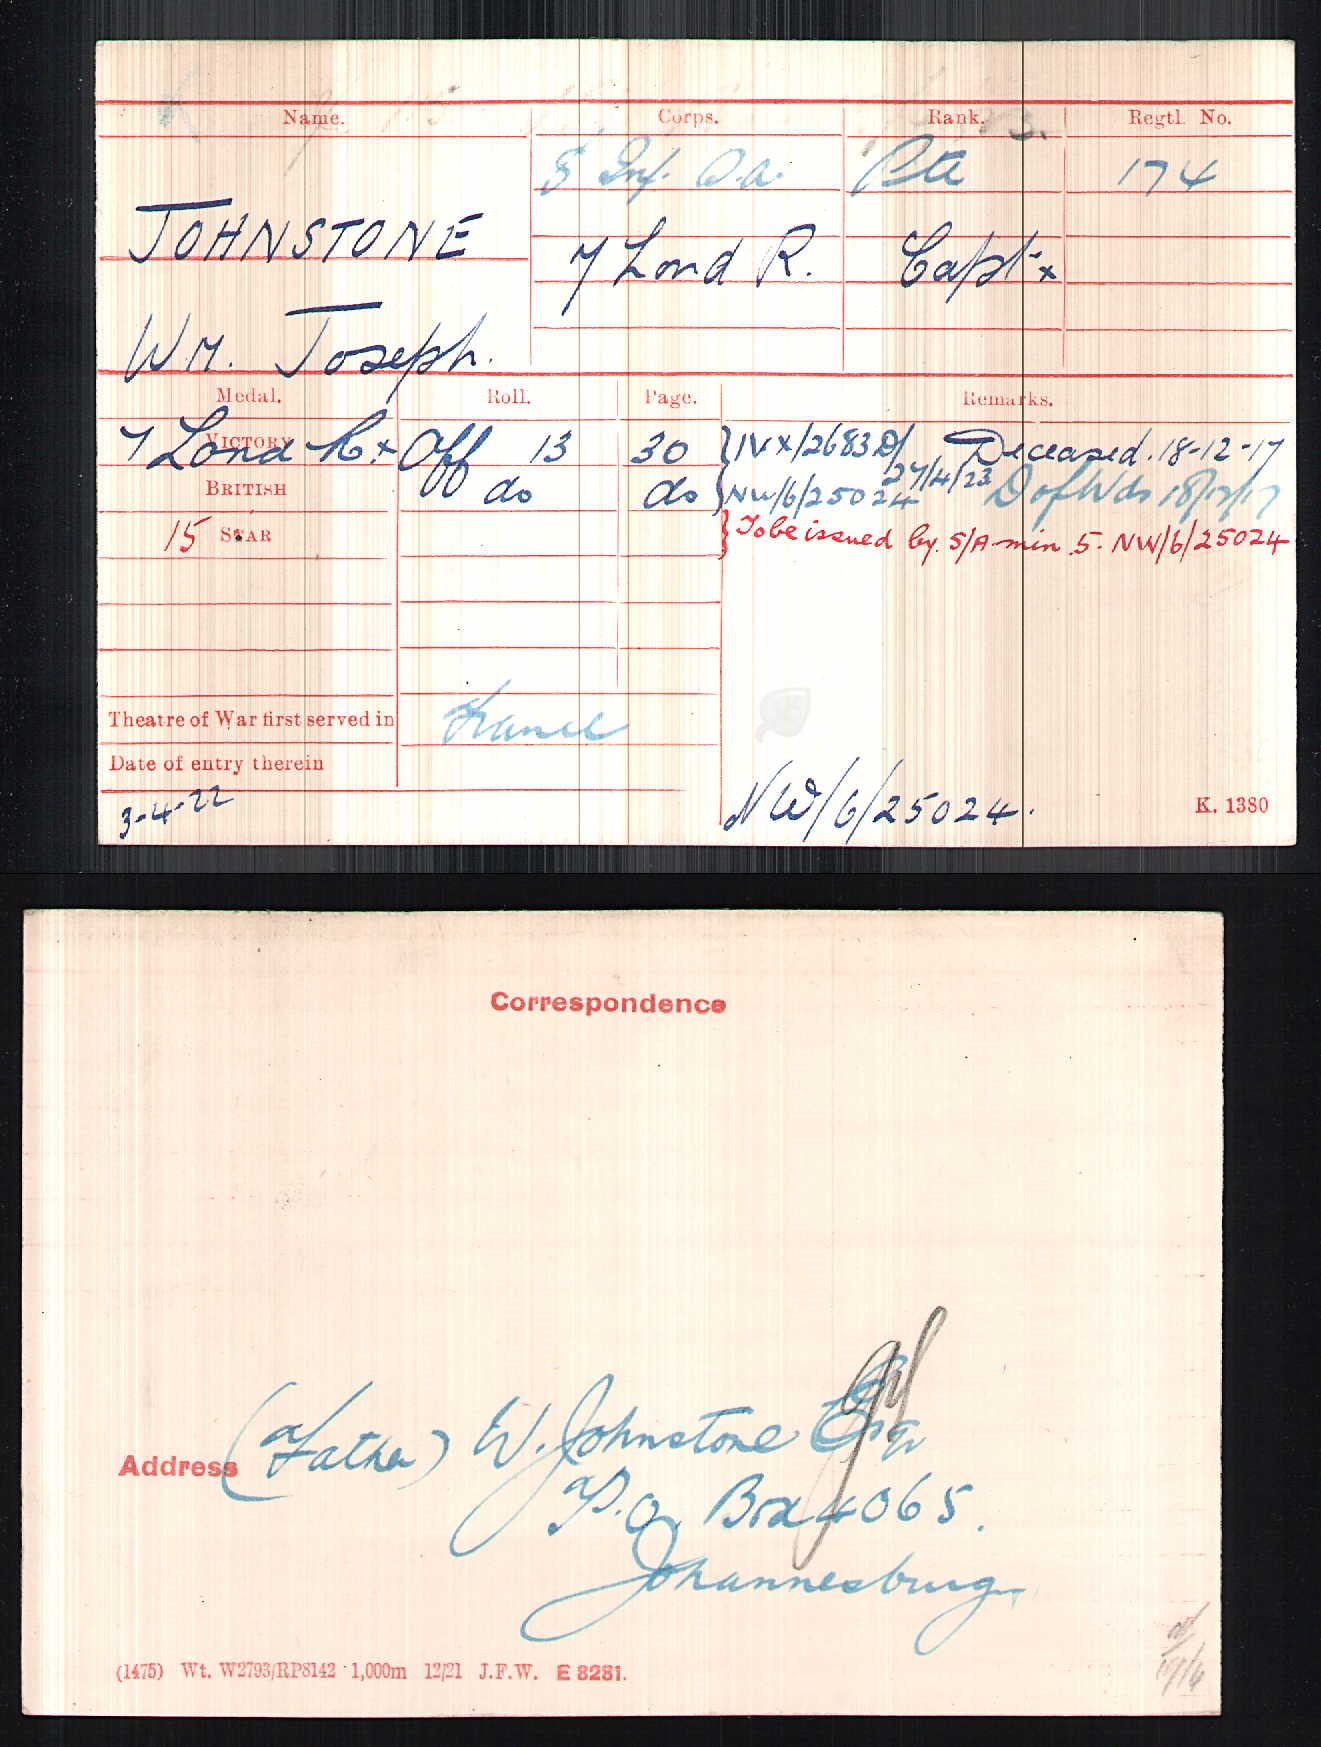 Name. Corps. Rank. Regtl. No.
5 Inf. S.A. Pte 174
JOHNSTONE
7 Lond R. Capt. x
Wm. Joseph.
Medal. Roll. Page. Remarks.
VICTORY
7 Lond R. x Off 13 30 } IV x/2683D/ Deceased. 18-12-17
27/4/23
BRITISH do do } NW/6/25024 D of Wds 18/12/17
15 STAR } To be issued by S/A min 5. NW/6/25024
Theatre of War first served in France
Date of entry therein
3-4-22 NW/6/25024. K. 1380
Correspondence
Address (Father) W. Johnstone Esq
P.O. Box 4065.
Johannesburg.
(1475) Wt. W2793/RP8142 1,000m 12/21 J.F.W. E 8281.